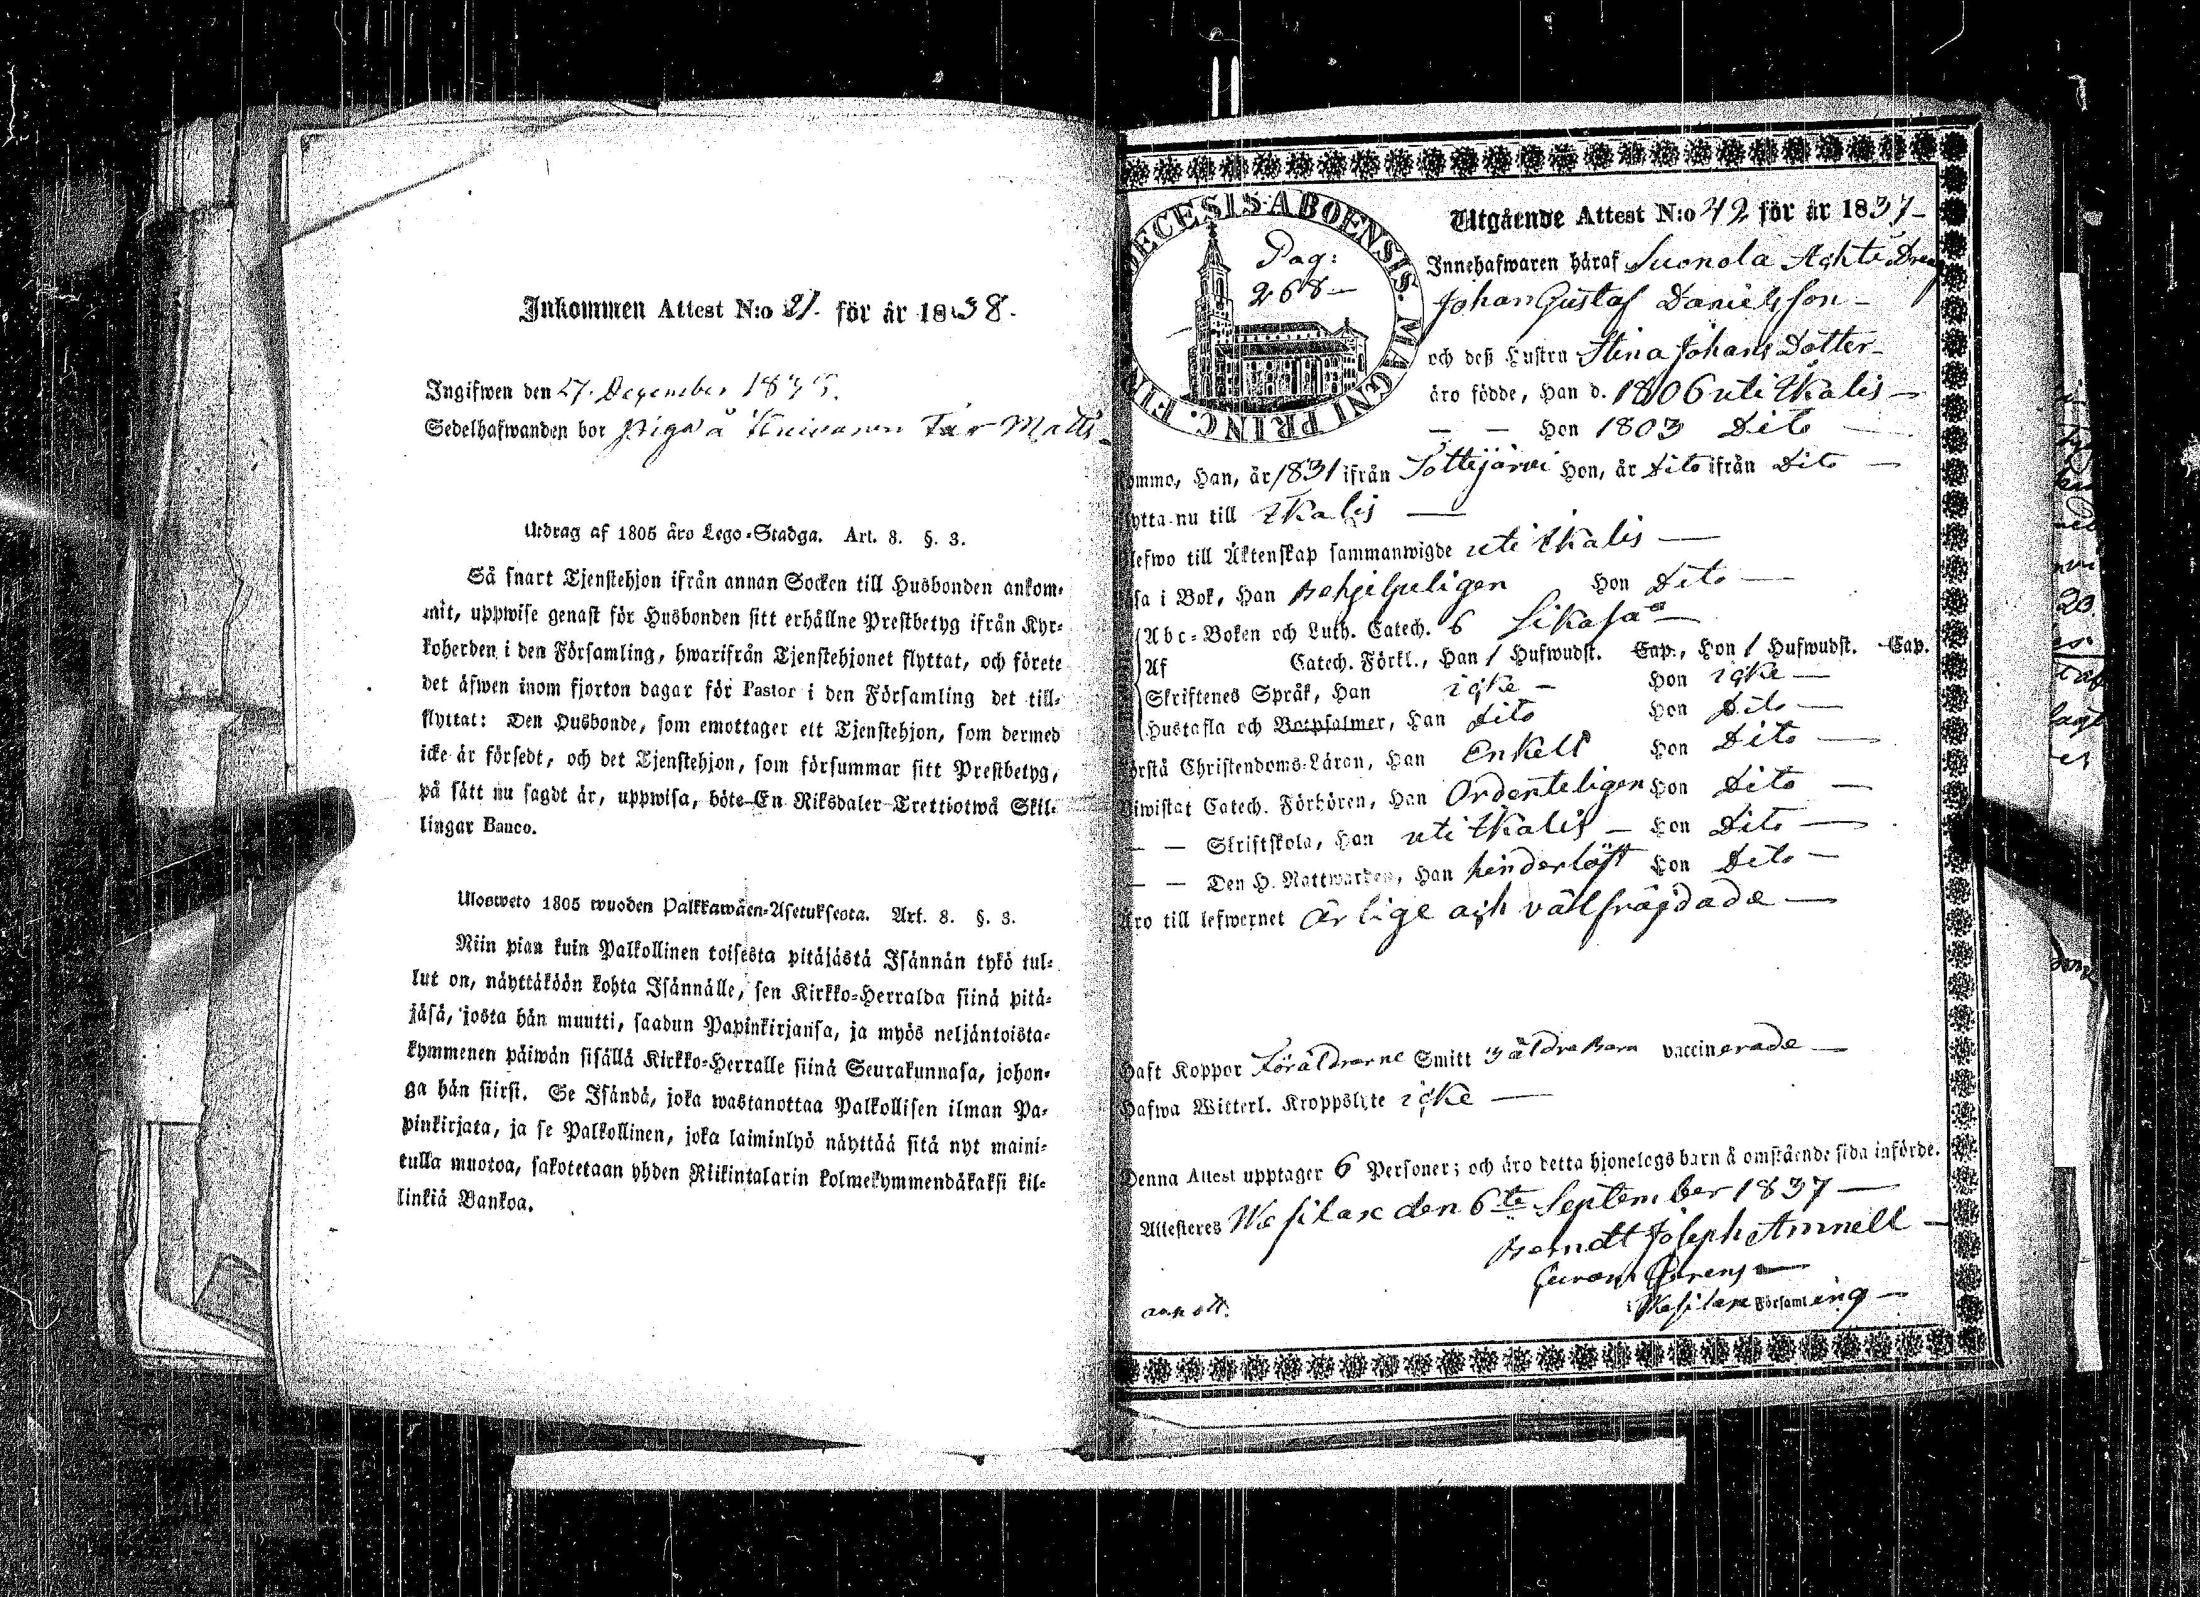 Inkommen Attest N:o 21. för år 1838.
Ingifwen den 27. December
Sedelhafwanden bor Piga å Tär Matts
Utdrag af 1805 års Lego-Stadga. Art. 8. §. 3.
Så snart Tjenstehjon ifrån annan Socken till Husbonden ankom-
mit, uppwise genast för Husbonden sitt erhållne Prestbetyg ifrån Kyr-
koherden i den Församling, hwarifrån Tjenstehjonet flyttat, och förete
det äfwen inom fjorton dagar för Pastor i den Församling det till-
flyttat: Den Husbonde, som emottager ett Tjenstehjon, som dermed
icke är försedt, och det Tjenstehjon, som försummar sitt Prestbetyg,
på sätt nu sagdt är, uppwisa, böte En Riksdaler Trettiotwå Skil-
lingar Banco.
Ulosweto 1805 wuoden Palkkawäen-Asetuksesta. Art. 8. §. 3.
Niin pian kuin Palkollinen toisesta pitäjästä Isännän tykö tul-
lut on, näyttäköön kohta Isännälle, sen Kirkko-Herralda siinä pitä-
jäsä, josta hän muutti, saadun Papinkirjansa, ja myös neljäntoista-
kymmenen päiwän sisällä Kirkko-Herralle siinä Seurakunnasa, johon-
ga hän siirsi. Se Isändä, joka wastanottaa Palkollisen ilman Pa-
pinkirjata, ja se Palkollinen, joka laiminlyö näyttää sitä nyt maini-
tulla muotoa, sakotetaan yhden Riikintalarin kolmekymmendäkaksi kil-
linkiä Bankoa.
DECESIS ABOENSIS. MAGNI PRINC. FIN
Pag:
268
Utgående Attest N:o 42 för år 1837
Innehafwaren häraf Suonola Achte Dreng
Johan Gustaf Danielsson
och deß Hustru Stina Johans Dotter
äro födde, Han d. 1806 uti Ikalis
— — Hon 1803 Dito
ommo, Han, år 1831 ifrån Tottijärvi Hon, år Dito ifrån Dito
lytta nu till Ikalis
lefwo till Äktenskap sammanwigde uti Ikalis
äsa i Bok, Han Behjelpeligen Hon Dito
Abc-Boken och Luth. Catech. 6 Likaså
Af Catech. Förkl., Han 1 Hufwudst. Cap., Hon 1 Hufwudst. Cap.
Skriftenes Språk, Han icke Hon icke
Hustafla och Botpsalmer, Han Dito Hon Dito
örstå Christendoms-Läran, Han Enkelt Hon Dito
Biwistat Catech. Förhören, Han Ordenteligen Hon Dito
— — Skriftskola, Han uti Ikalis Hon Dito
— — Den H. Nattwarden, Han hinderlöst Hon Dito
Äro till lefwernet Ärlige och välfrägdade
Haft Koppor Föräldrarne Smitt 3 äldre Barn vaccinerade
Hafwa Witterl. Kroppslyte icke
Denna Attest upptager 6 Personer; och äro detta hjonelags barn å omstående sida införde.
Attesteres Wesilax den 6te September 1837
Berndt Joseph Amnell
i Wesilax Församling